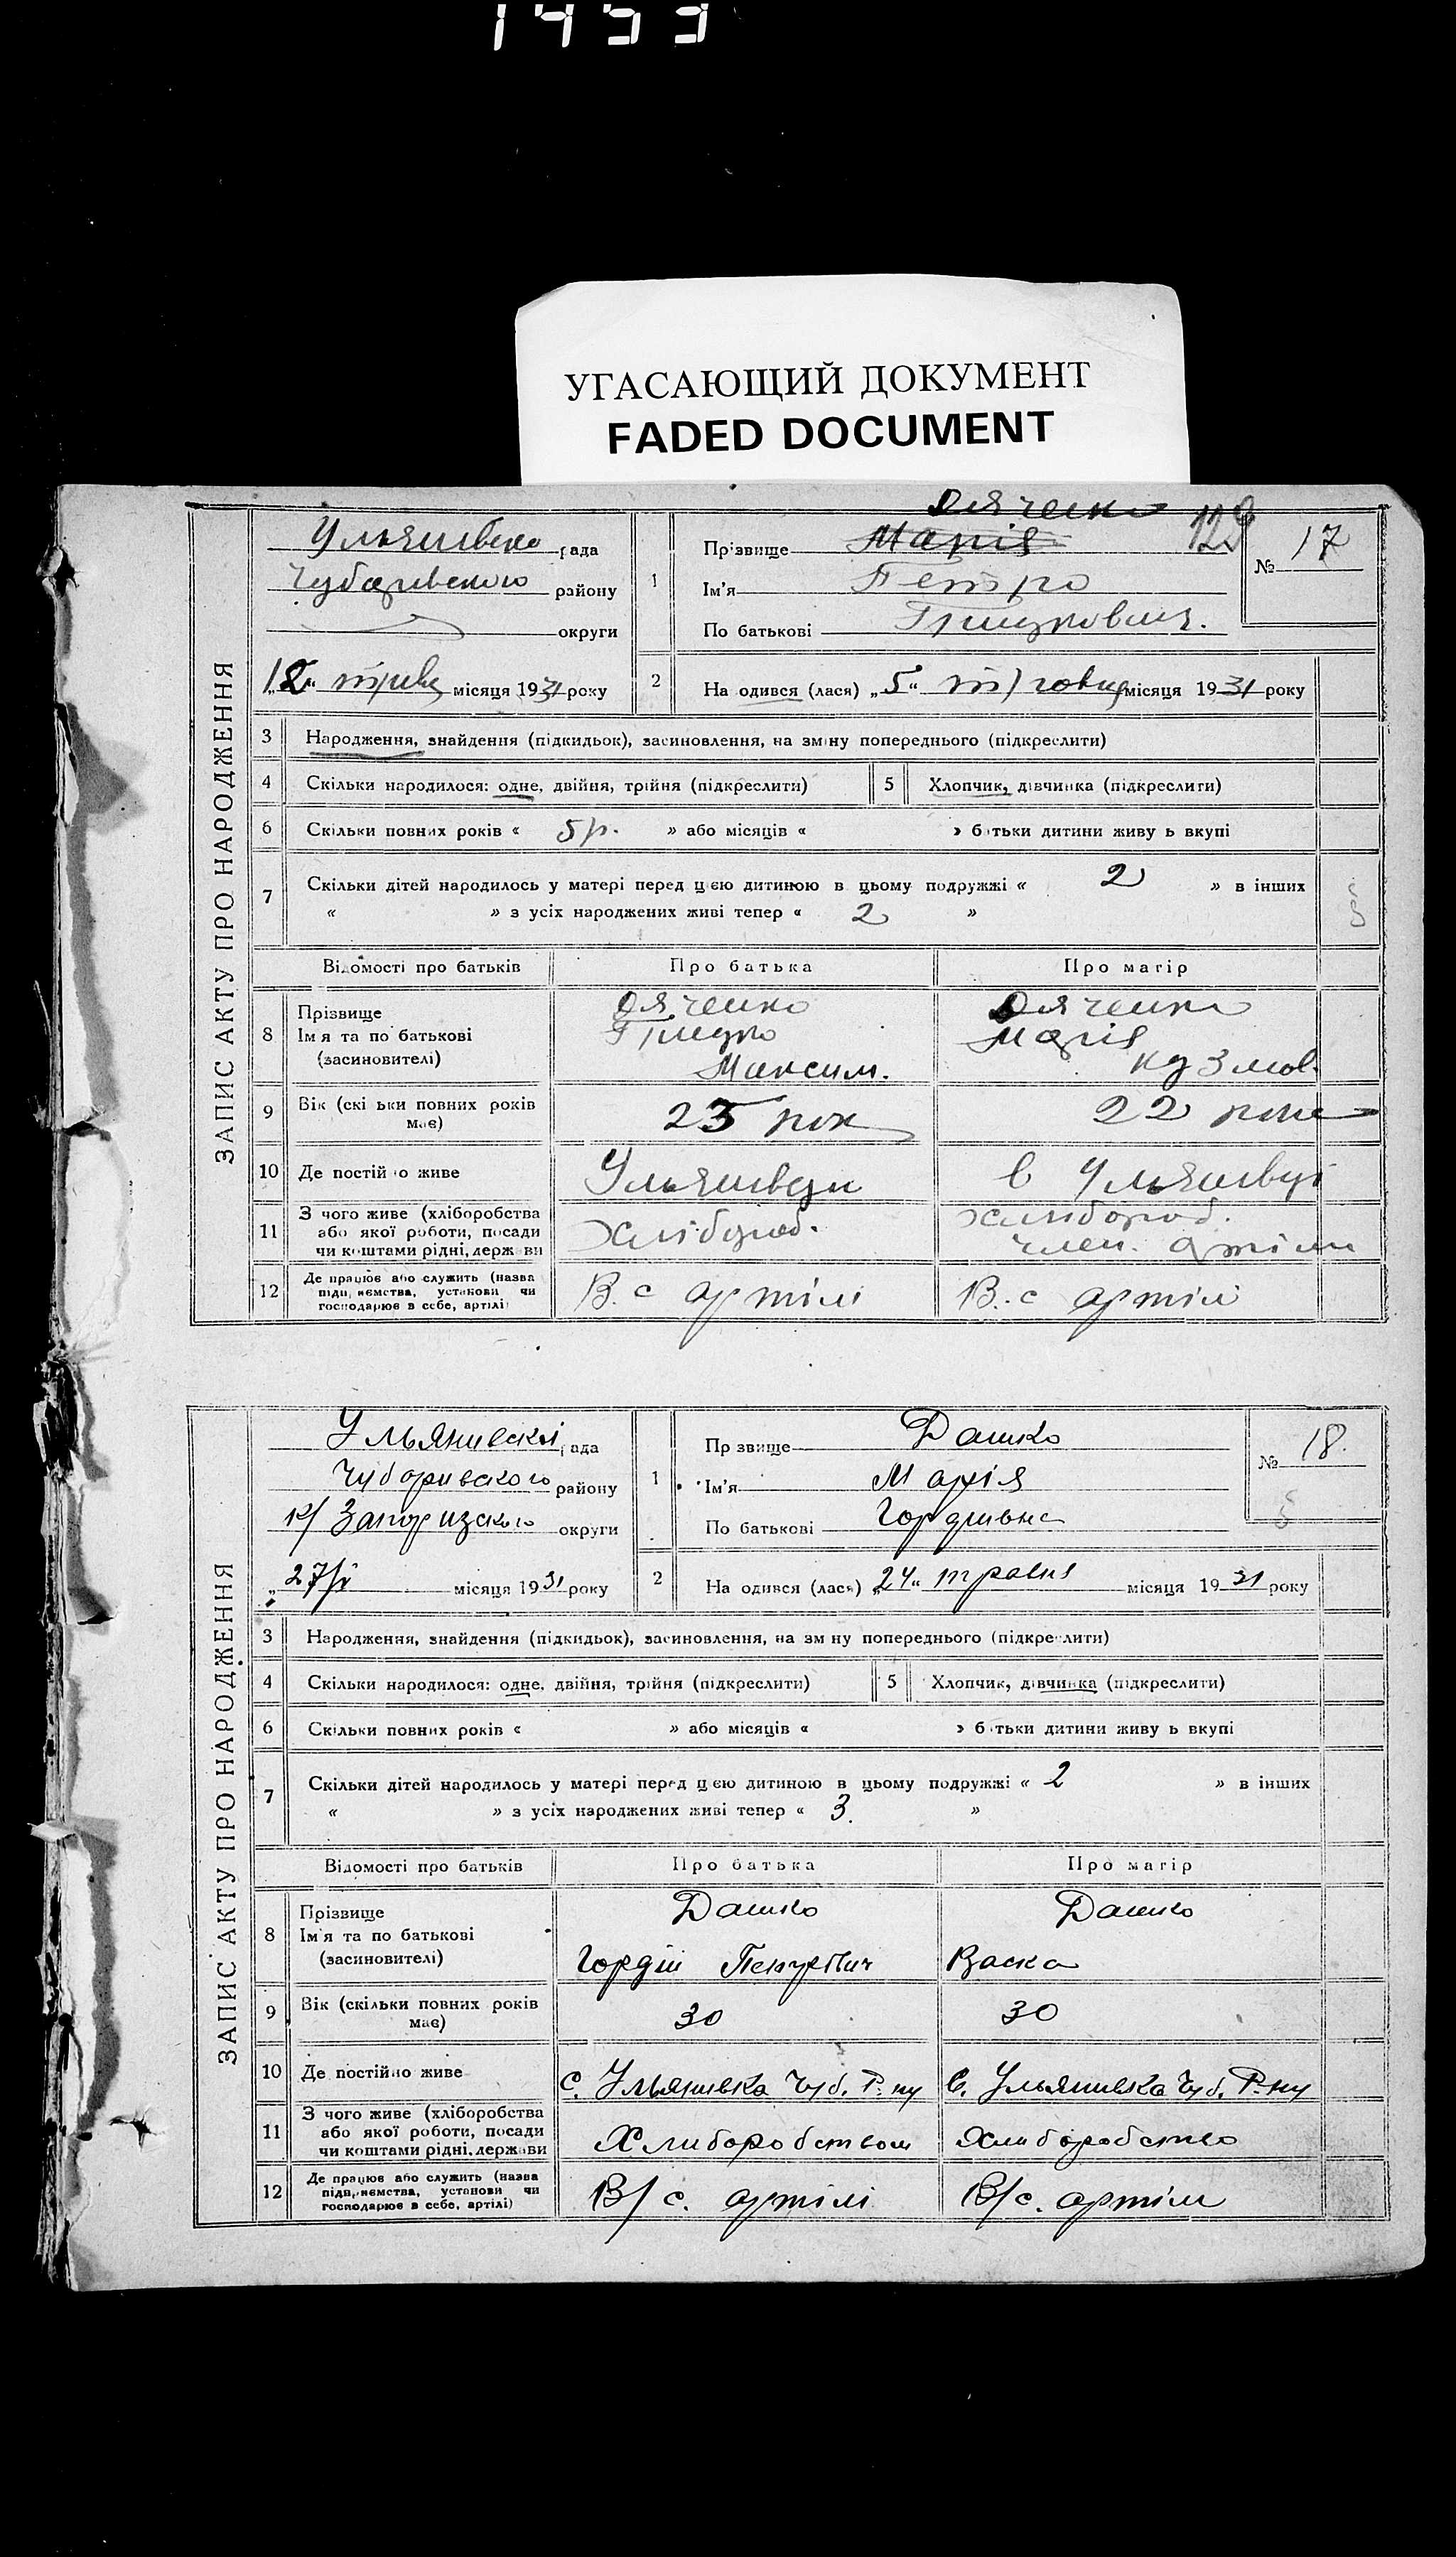 1453
УГАСАЮЩИЙ ДОКУМЕНТ
FADED DOCUMENT
129
ЗАПИС АКТУ ПРО НАРОДЖЕННЯ
Ульянівська рада
Чубарівського району
округи
"12" трав місяця 1931 року
1
Дяченко
Прізвище Марія
Ім'я Петро
По батькові Грицкович.
№ 17
2 На одився (лася) „5“ місяця 1931 року
3 Народження, знайдення (підкидьок), засиновлення, на зміну попереднього (підкреслити)
4 Скільки народилося: одне, двійня, трійня (підкреслити) 5 Хлопчик, дівчинка (підкреслити)
6 Скільки повних років « 5 р. » або місяців « » батьки дитини живуть вкупі
7 Скільки дітей народилось у матері перед цією дитиною в цьому подружжі « 2 » в інших
« » з усіх народжених живі тепер « 2 »
Відомості про батьків Про батька Про матір
8 Прізвище Дяченко Дяченко
Ім я та по батькові Грицко Марія
(засиновителі) Максим. Кузмов.
9 Вік (скі ьки повних років має) 23 рок 22 роки
10 Де постій о живе Ульянівци в Ульянівці
11 З чого живе (хліборобства
або якої роботи, посади
чи коштами рідні, держави
Хлібороб. хлібороб.
член. артіли
12 Де працює або служить (назва
підприємства, установи чи
господарює в себе, артілі)
В. с артілі В. с артілі
ЗАПИС АКТУ ПРО НАРОДЖЕННЯ
Ульянивскі рада
Чубаривского району
к/ Запоризского округи
„27/V місяця 1931 року
1
Пр звище Дашко
Ім'я Марія
По батькові Гордиівна
№ 18.
2 На одився (лася) „24“ травня місяця 1931 року
3 Народження, знайдення (підкидьок), засиновлення, на зміну попереднього (підкреслити)
4 Скільки народилося: одне, двійня, трійня (підкреслити) 5 Хлопчик, дівчинка (підкреслити)
6 Скільки повних років « » або місяців « » батьки дитини живуть вкупі
7 Скільки дітей народилось у матері перед цією дитиною в цьому подружжі « 2 » в інших
« » з усіх народжених живі тепер « 3. »
Відомості про батьків Про батька Про матір
8 Прізвище Дашко Дашко
Ім'я та по батькові
(засиновителі) Гордій Васка
9 Вік (скільки повних років має) 30 30
10 Де постійно живе с. Ульянивка Чуб. Р-ну с. Ульянивка Чуб. Р-ну
11 З чого живе (хліборобства
або якої роботи, посади
чи коштами рідні, держави
Хлиборобством Хлиборобство
12 Де працює або служить (назва
підприємства, установи чи
господарює в себе, артілі)
В/с. артілі В/с. артіли